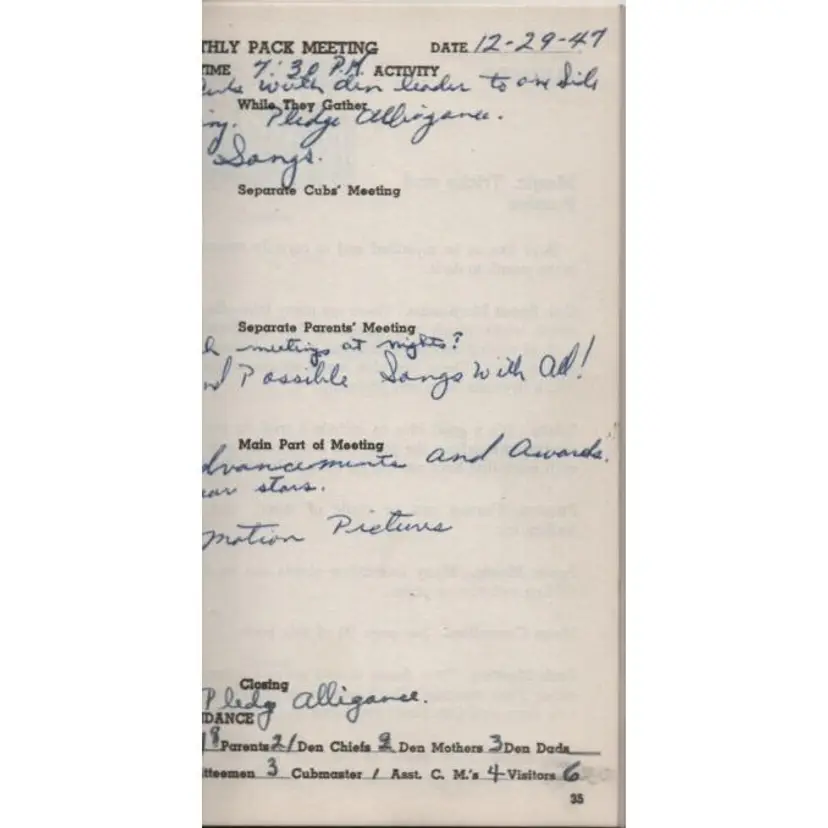 THLY PACK MEETING DATE 12-29-47
TIME 7:30 P.M. ACTIVITY
Cubs with den leader to one side
While They Gather
ing. Pledge Alliogance.
Songs.
Separate Cubs' Meeting
Separate Parents' Meeting
h meetings at nights?
nd Possible Songs With All!
Main Part of Meeting
dvancements and Awards.
ear stars.
Motion Pictures
Closing
Pledg Alligance.
DANCE
18 Parents 21 Den Chiefs 2 Den Mothers 3 Den Dads
tteemen 3 Cubmaster 1 Asst. C. M.'s 4 Visitors 6
35